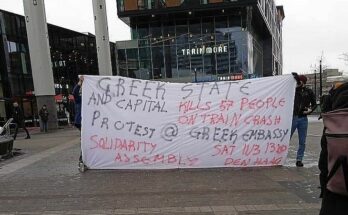 TRAINMORE
TRAINMORE
GREEK STATE
AND CAPITAL KILLS 57 PEOPLE
ON TRAIN CRASH
PROTEST @ GREEK EMBASSY
SOLIDARITY SAT 11/3 13:00
ASSEMBLY DEN HAAG